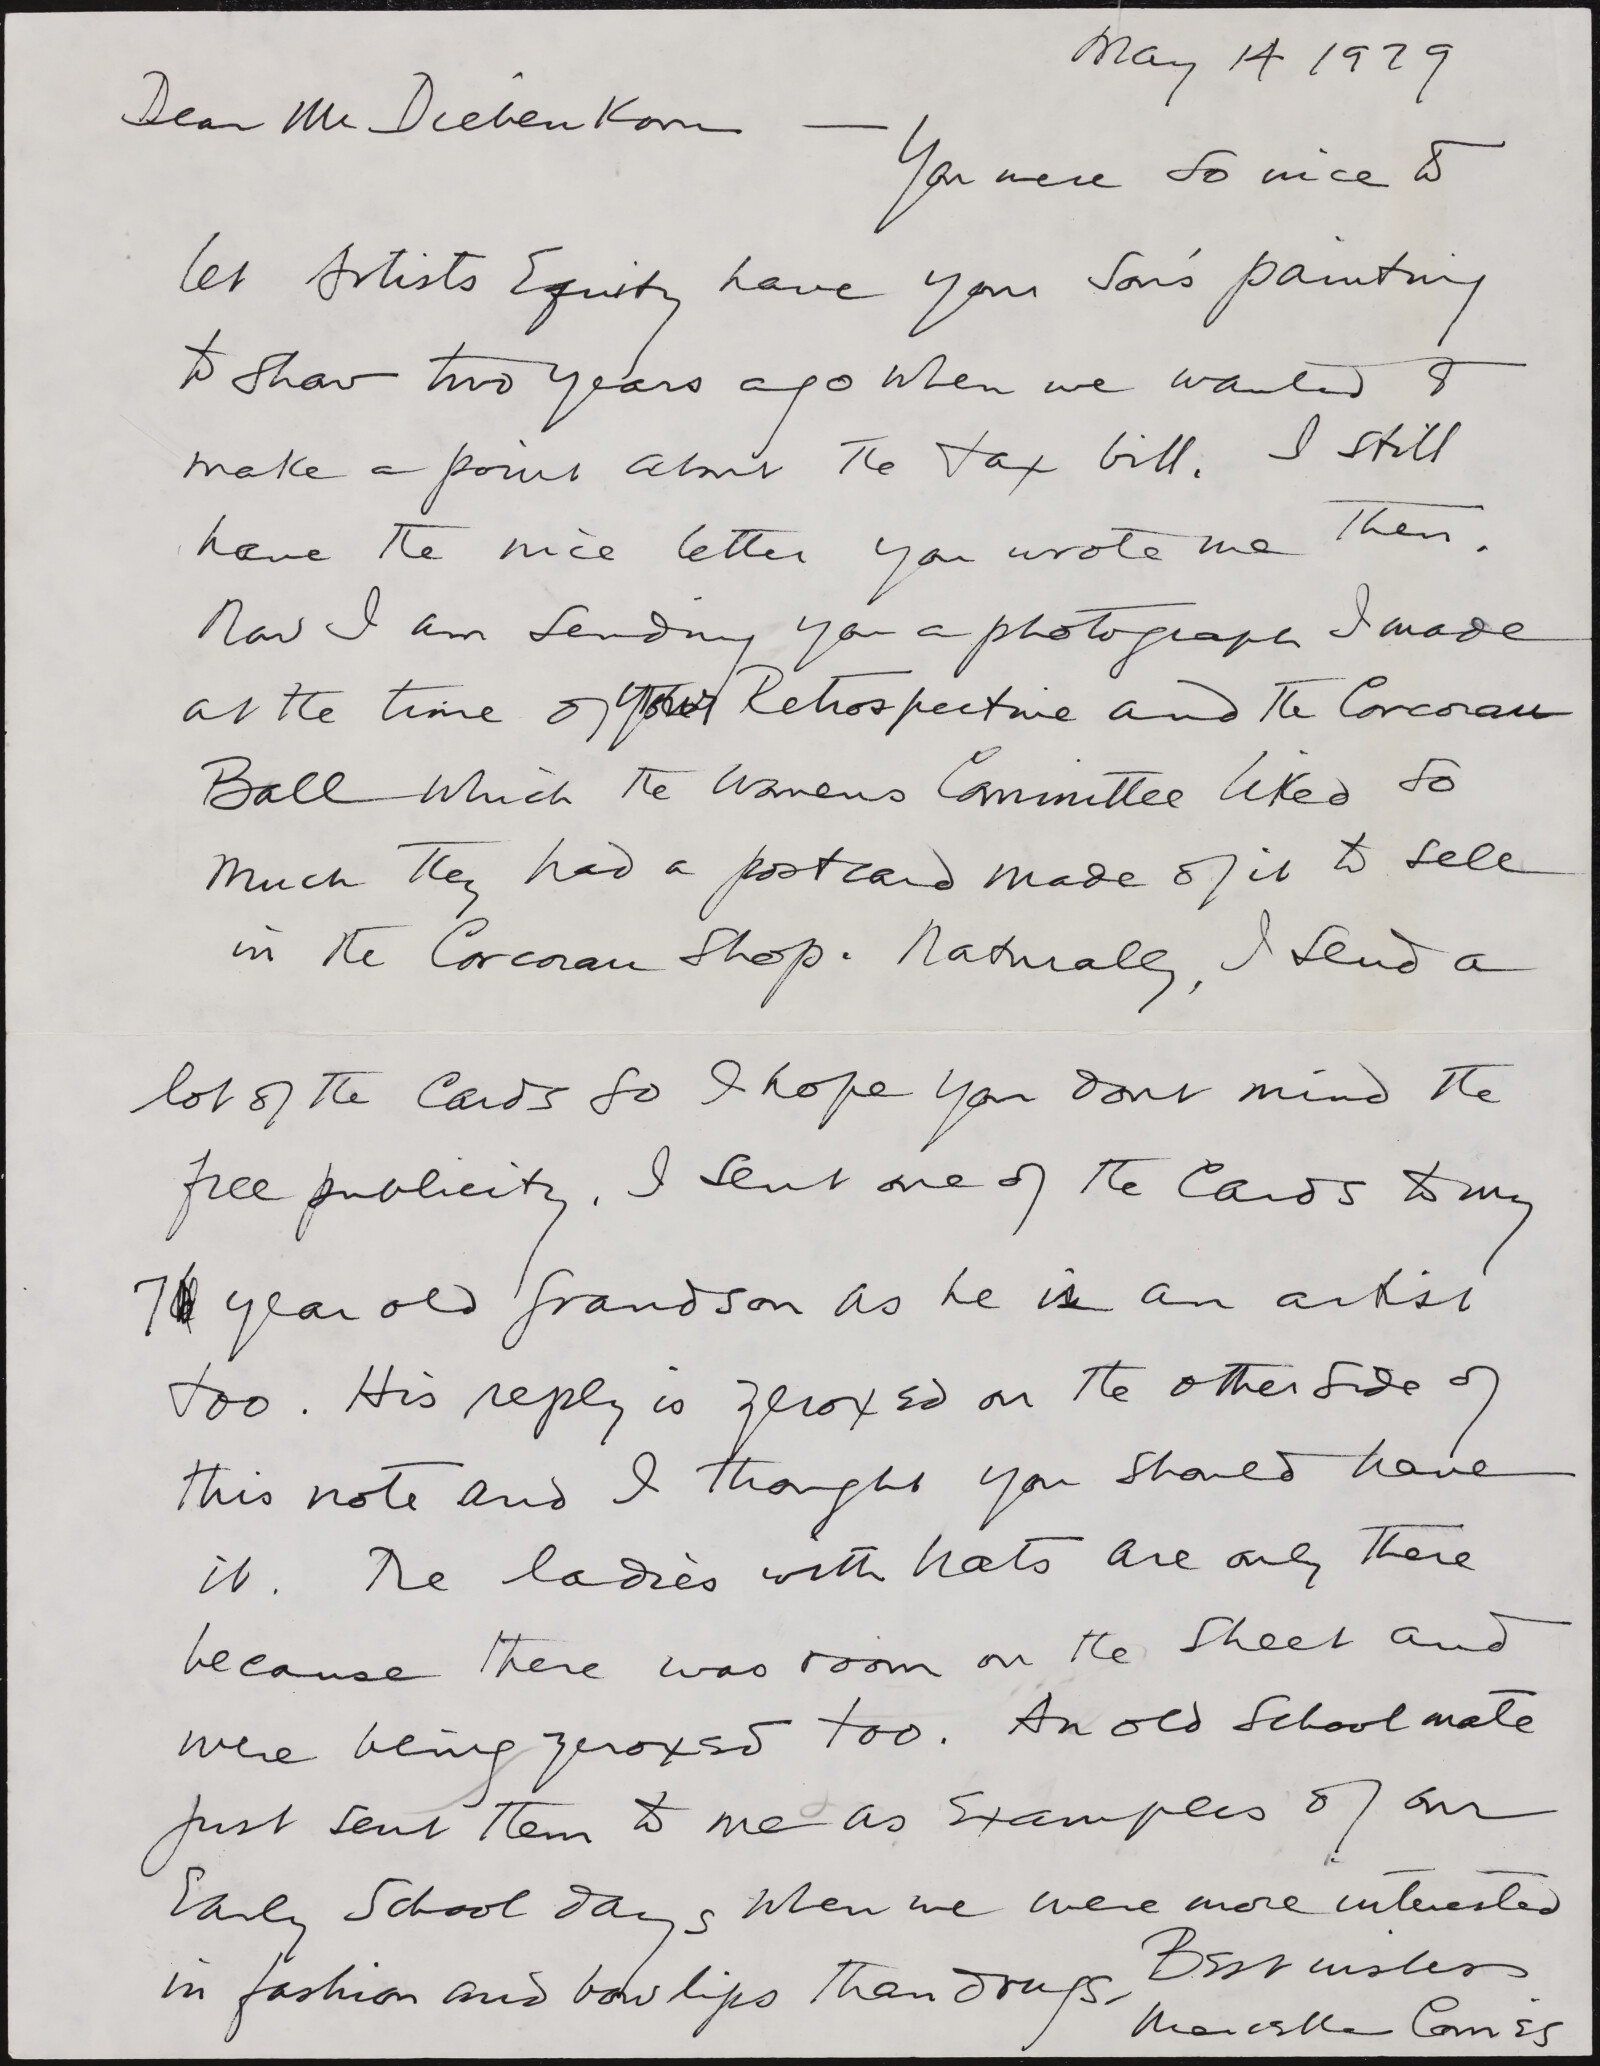 May 14 1979
Dear Mr Diebenkorn —
You were so nice to
let Artists Equity have your Son's painting
to show two years ago when we wanted to
make a point about the tax bill. I still
have the nice letter you wrote me then.
Now I am sending you a photograph I made
at the time of your Retrospective and the Corcoran
Ball which the Womens Committee liked so
much they had a postcard made of it to sell
in the Corcoran Shop. Naturally, I send a
lot of the cards so I hope you dont mind the
free publicity. I sent one of the cards to my
7 year old grandson as he is an artist
too. His reply is zeroxed on the other side of
this note and I thought you should have
it. The ladies with hats are only there
because there was room on the sheet and
were being zeroxed too. An old School mate
just sent them to me as examples of our
Early School days when we were more interested
in fashion and bow lips than drugs.
Best wishes
Marcella Comès